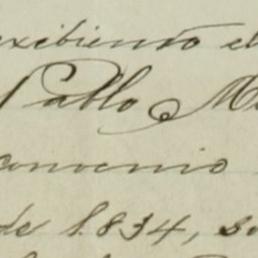 exibiento el
Pablo M
convenio
de 1.834, s